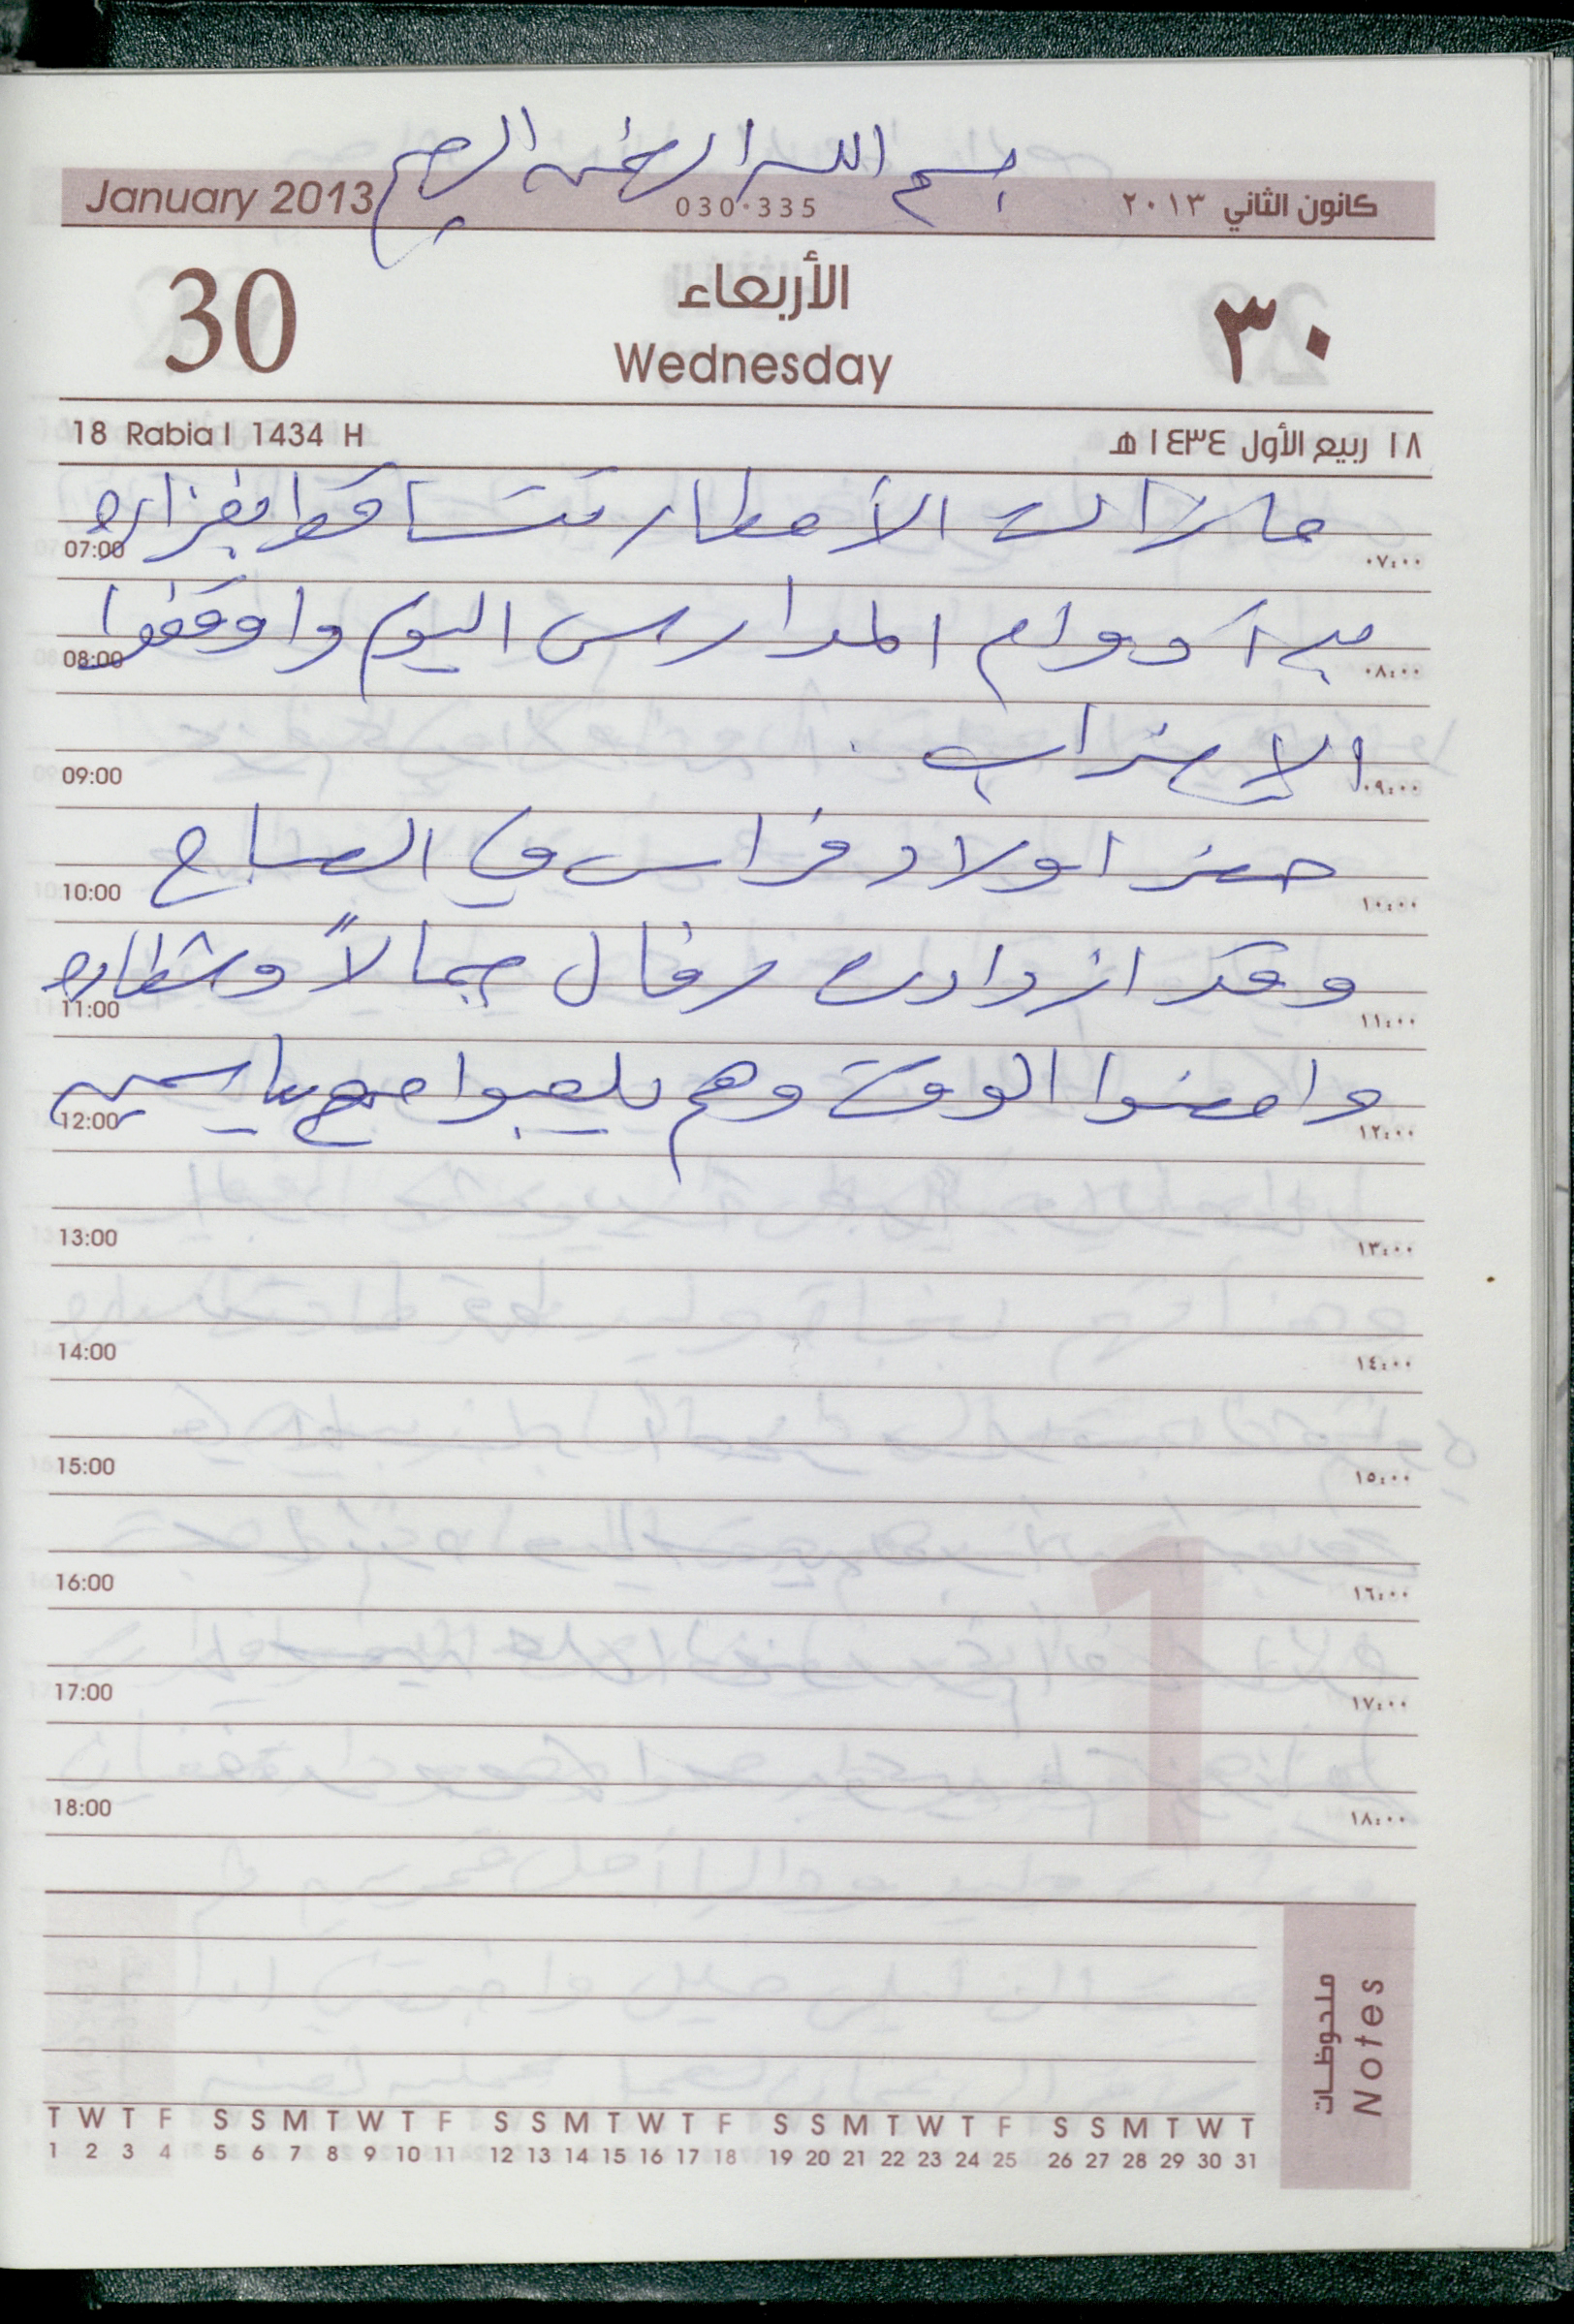 بسم الله الرحمن الرحيم
January 2013 030-335 كانون الثاني ٢٠١٣
30 الأربعاء ٣٠
Wednesday
18 Rabia I 1434 H ١٨ ربيع الأول ١٤٣٤ هـ
مازالت الأمطار تتساقط بغزاره
07:00 ٠٧:٠٠
بدأ دوام المدارس اليوم واوقفوا
08:00 ٠٨:٠٠
الإضراب .
09:00 ٠٩:٠٠
حضر اولاد فراس في الصباح
10:00 ١٠:٠٠
وقد ازدادت رفال جمالاً وشطاره
11:00 ١١:٠٠
وامضوا الوقت وهم يلعبوا مع ياسمين
12:00 ١٢:٠٠
13:00 ١٣:٠٠
14:00 ١٤:٠٠
15:00 ١٥:٠٠
16:00 ١٦:٠٠
1
17:00 ١٧:٠٠
18:00 ١٨:٠٠
ملحوظات
Notes
T W T F S S M T W T F S S M T W T F S S M T W T F S S M T W T
1 2 3 4 5 6 7 8 9 10 11 12 13 14 15 16 17 18 19 20 21 22 23 24 25 26 27 28 29 30 31